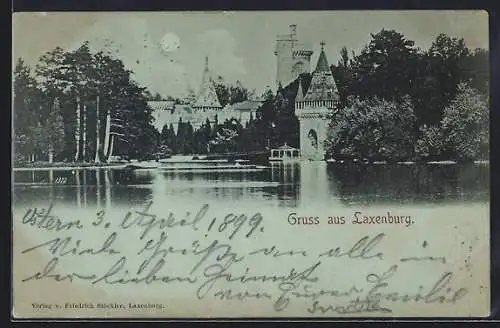 Gruss aus Laxenburg.
1372
Ostern 3. April 1899.
Viele Grüße an alle in
der lieben Heimat
von Eurer Emilie
Verlag v. Friedrich Stöckler, Laxenburg.